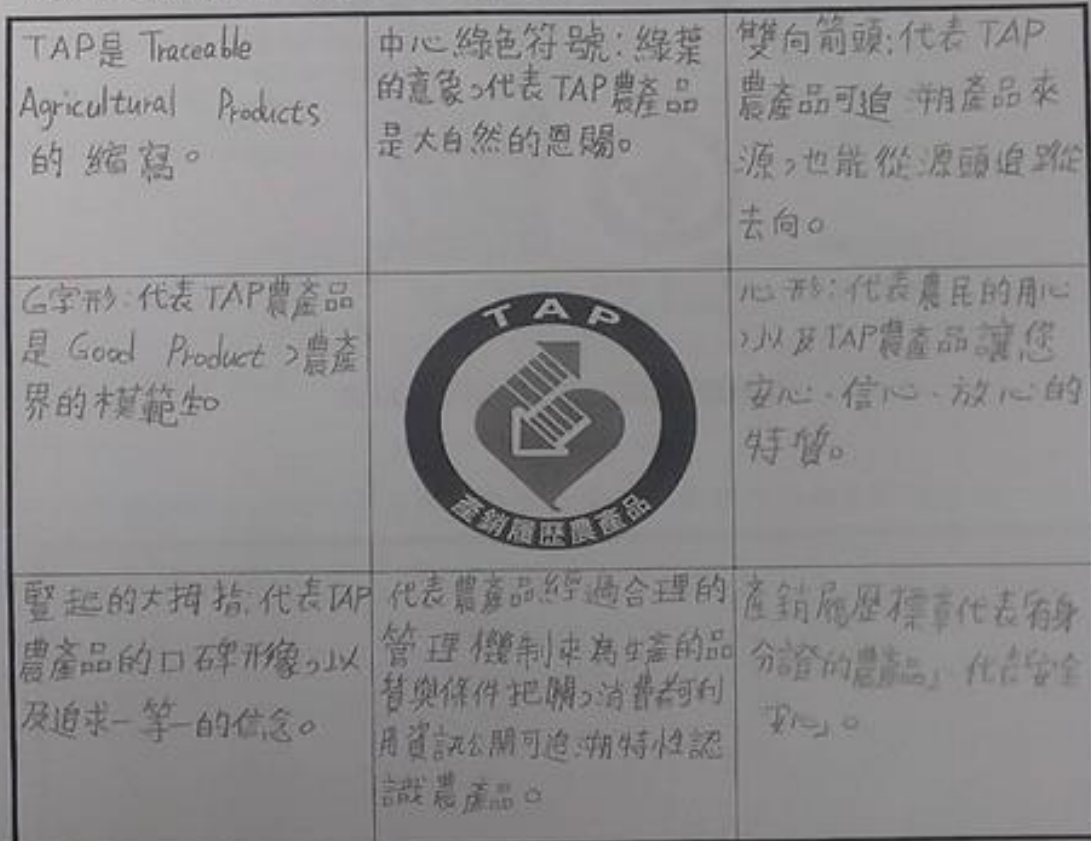 TAP是 Traceable
Agricultural Products
的 縮寫。
中心綠色符號:綠葉
的意象,代表TAP農產品
是大自然的恩賜。
雙向箭頭:代表TAP
農產品可追溯產品來
源,也能從源頭追蹤
去向。
G字形:代表TAP農產品
是 Good Product,農產
界的模範生。
TAP
產銷履歷農產品
心形:代表農民的用心
,以及TAP農產品讓您
安心、信心、放心的
特質。
豎起的大拇指:代表TAP
農產品的口碑形像,以
及追求一等一的信念。
代表農產品經過合理的
管理機制來為生產的品
質與條件把關,消費者可利
用資訊公開可追溯特性認
識農產品。
產銷履歷標章代表有身
分證的農產品」代表安全
安心」。